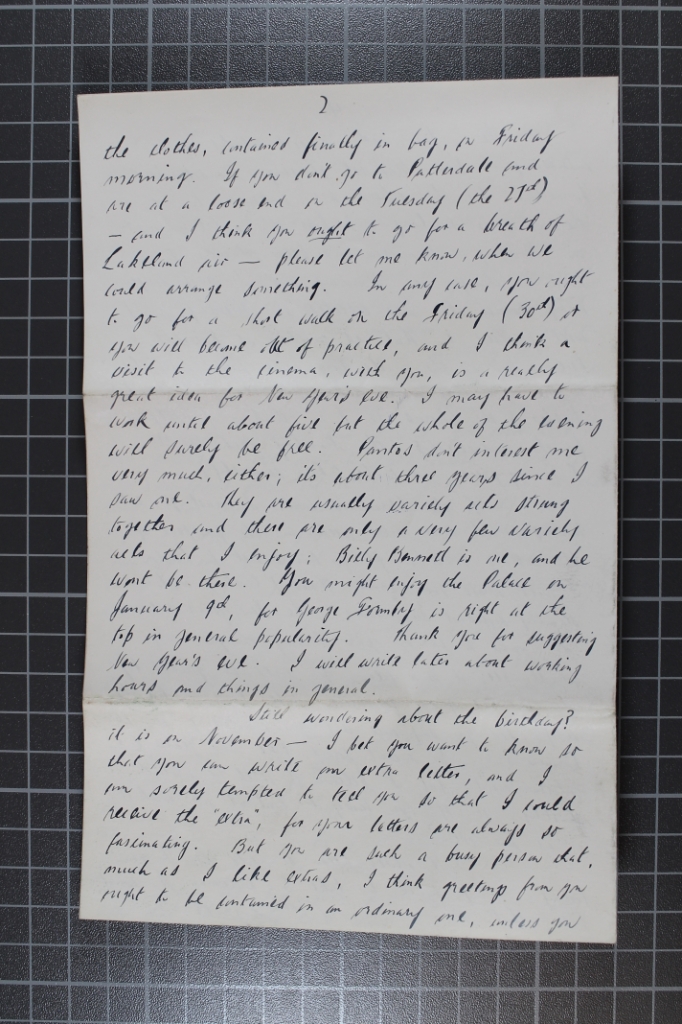 2
the clothes, contained finally in bag, on Friday
morning. If you don't go to Patterdale and
are at a loose end on the Tuesday (the 27th)
— and I think you ought to go for a breath of
Lakeland air — please let me know, when we
could arrange something. In any case, you ought
to go for a short walk on the Friday (30th) or
you will become out of practice, and I think a
visit to the cinema, with you, is a really
great idea for New Year's eve. I may have to
work until about five but the whole of the evening
will surely be free. Pantos don't interest me
very much, either; it's about three years since I
saw one. They are usually variety acts strung
together and there are only a very few variety
acts that I enjoy; Billy Bennett is one, and he
wont be there. You might enjoy the Palace on
January 9th, for George Formby is right at the
top in general popularity. Thank you for suggesting
New Year's eve. I will write later about working
hours and things in general.
Still wondering about the birthday?
it is on November — I bet you want to know so
that you can write an extra letter, and I
am sorely tempted to tell you so that I could
receive the "extra", for your letters are always so
fascinating. But you are such a busy person that,
much as I like extras, I think greetings from you
ought to be contained in an ordinary one, unless you